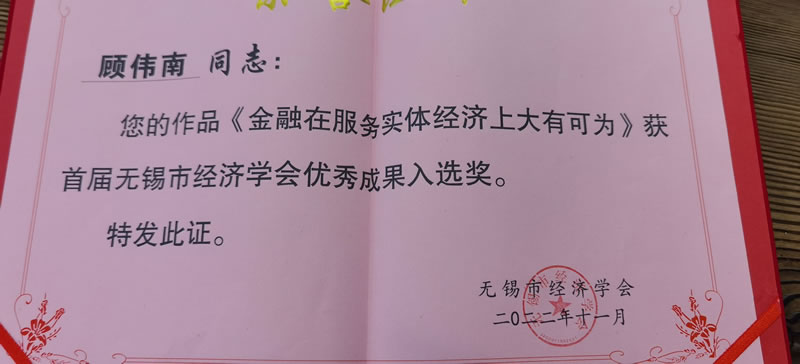 顾伟南 同志：
您的作品《金融在服务实体经济上大有可为》获
首届无锡市经济学会优秀成果入选奖。
特发此证。
无锡市经济学会
二〇二二年十一月